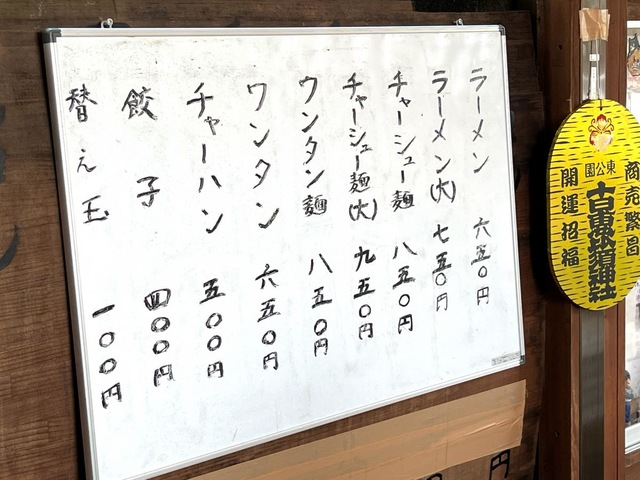 ラーメン 六五〇円
ラーメン(大) 七五〇円
チャーシュー麺 八五〇円
チャーシュー麺(大) 九五〇円
ワンタン麺 八五〇円
ワンタン 六五〇円
チャーハン 五〇〇円
餃子 四〇〇円
替え玉 一〇〇円
商売繁昌
東公園
開運招福
円